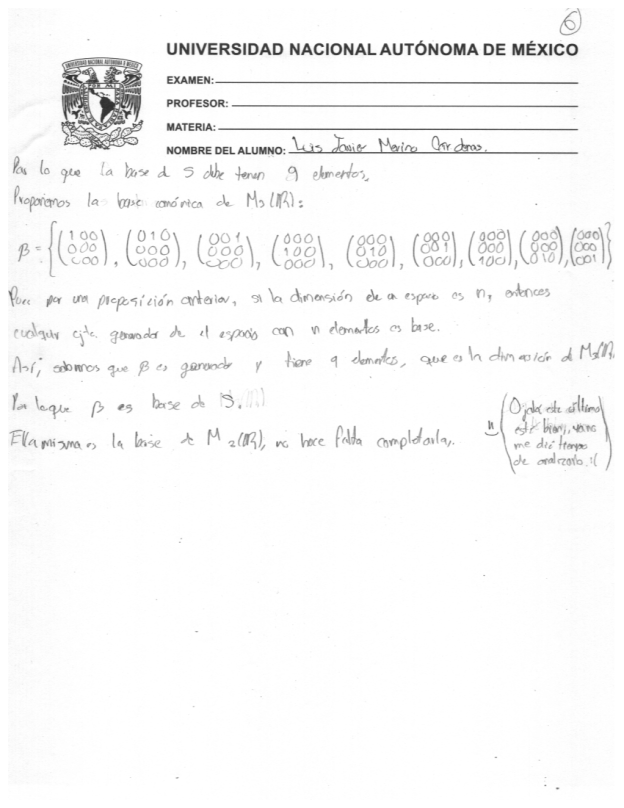 6
UNIVERSIDAD NACIONAL AUTÓNOMA DE MÉXICO
EXAMEN:
PROFESOR:
MATERIA:
NOMBRE DEL ALUMNO: Luis Javier Merino
Por lo que la base d S debe tener 9 elementos,
Proponemos la base canónica de M3(R):
β = { (100 000 000), (010 000 000), (001 000 000), (000 100 000), (000 010 000), (000 001 000), (000 000 100), (000 000 010), (000 000 001) }
Pues por una proposición anterior, si la dimensión de un espacio es n, entonces
cualquier cjto. generador de el espacio con n elementos es base.
Así, sabemos que β es generador y tiene 9 elementos, que es la dimensión de M3(R).
Por lo que β es base de S.
Ella misma es la base de M2(R), no hace falta completarla.
(Ojalá este último
esté bien, ya no
me dio tiempo
de analizarlo :( )